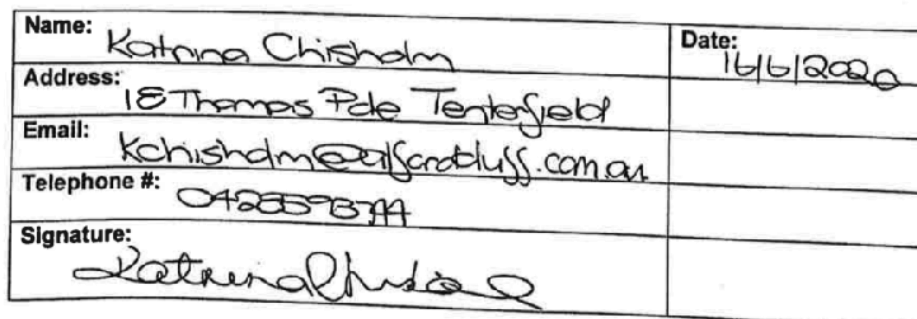 Name: Katrina Chisholm
Date: 16/6/2020
Address: 18 Thomas Pde Tenterfield
Email: kchisholm@alfordduff.com.au
Telephone #:
Signature: Katrina Chisholm